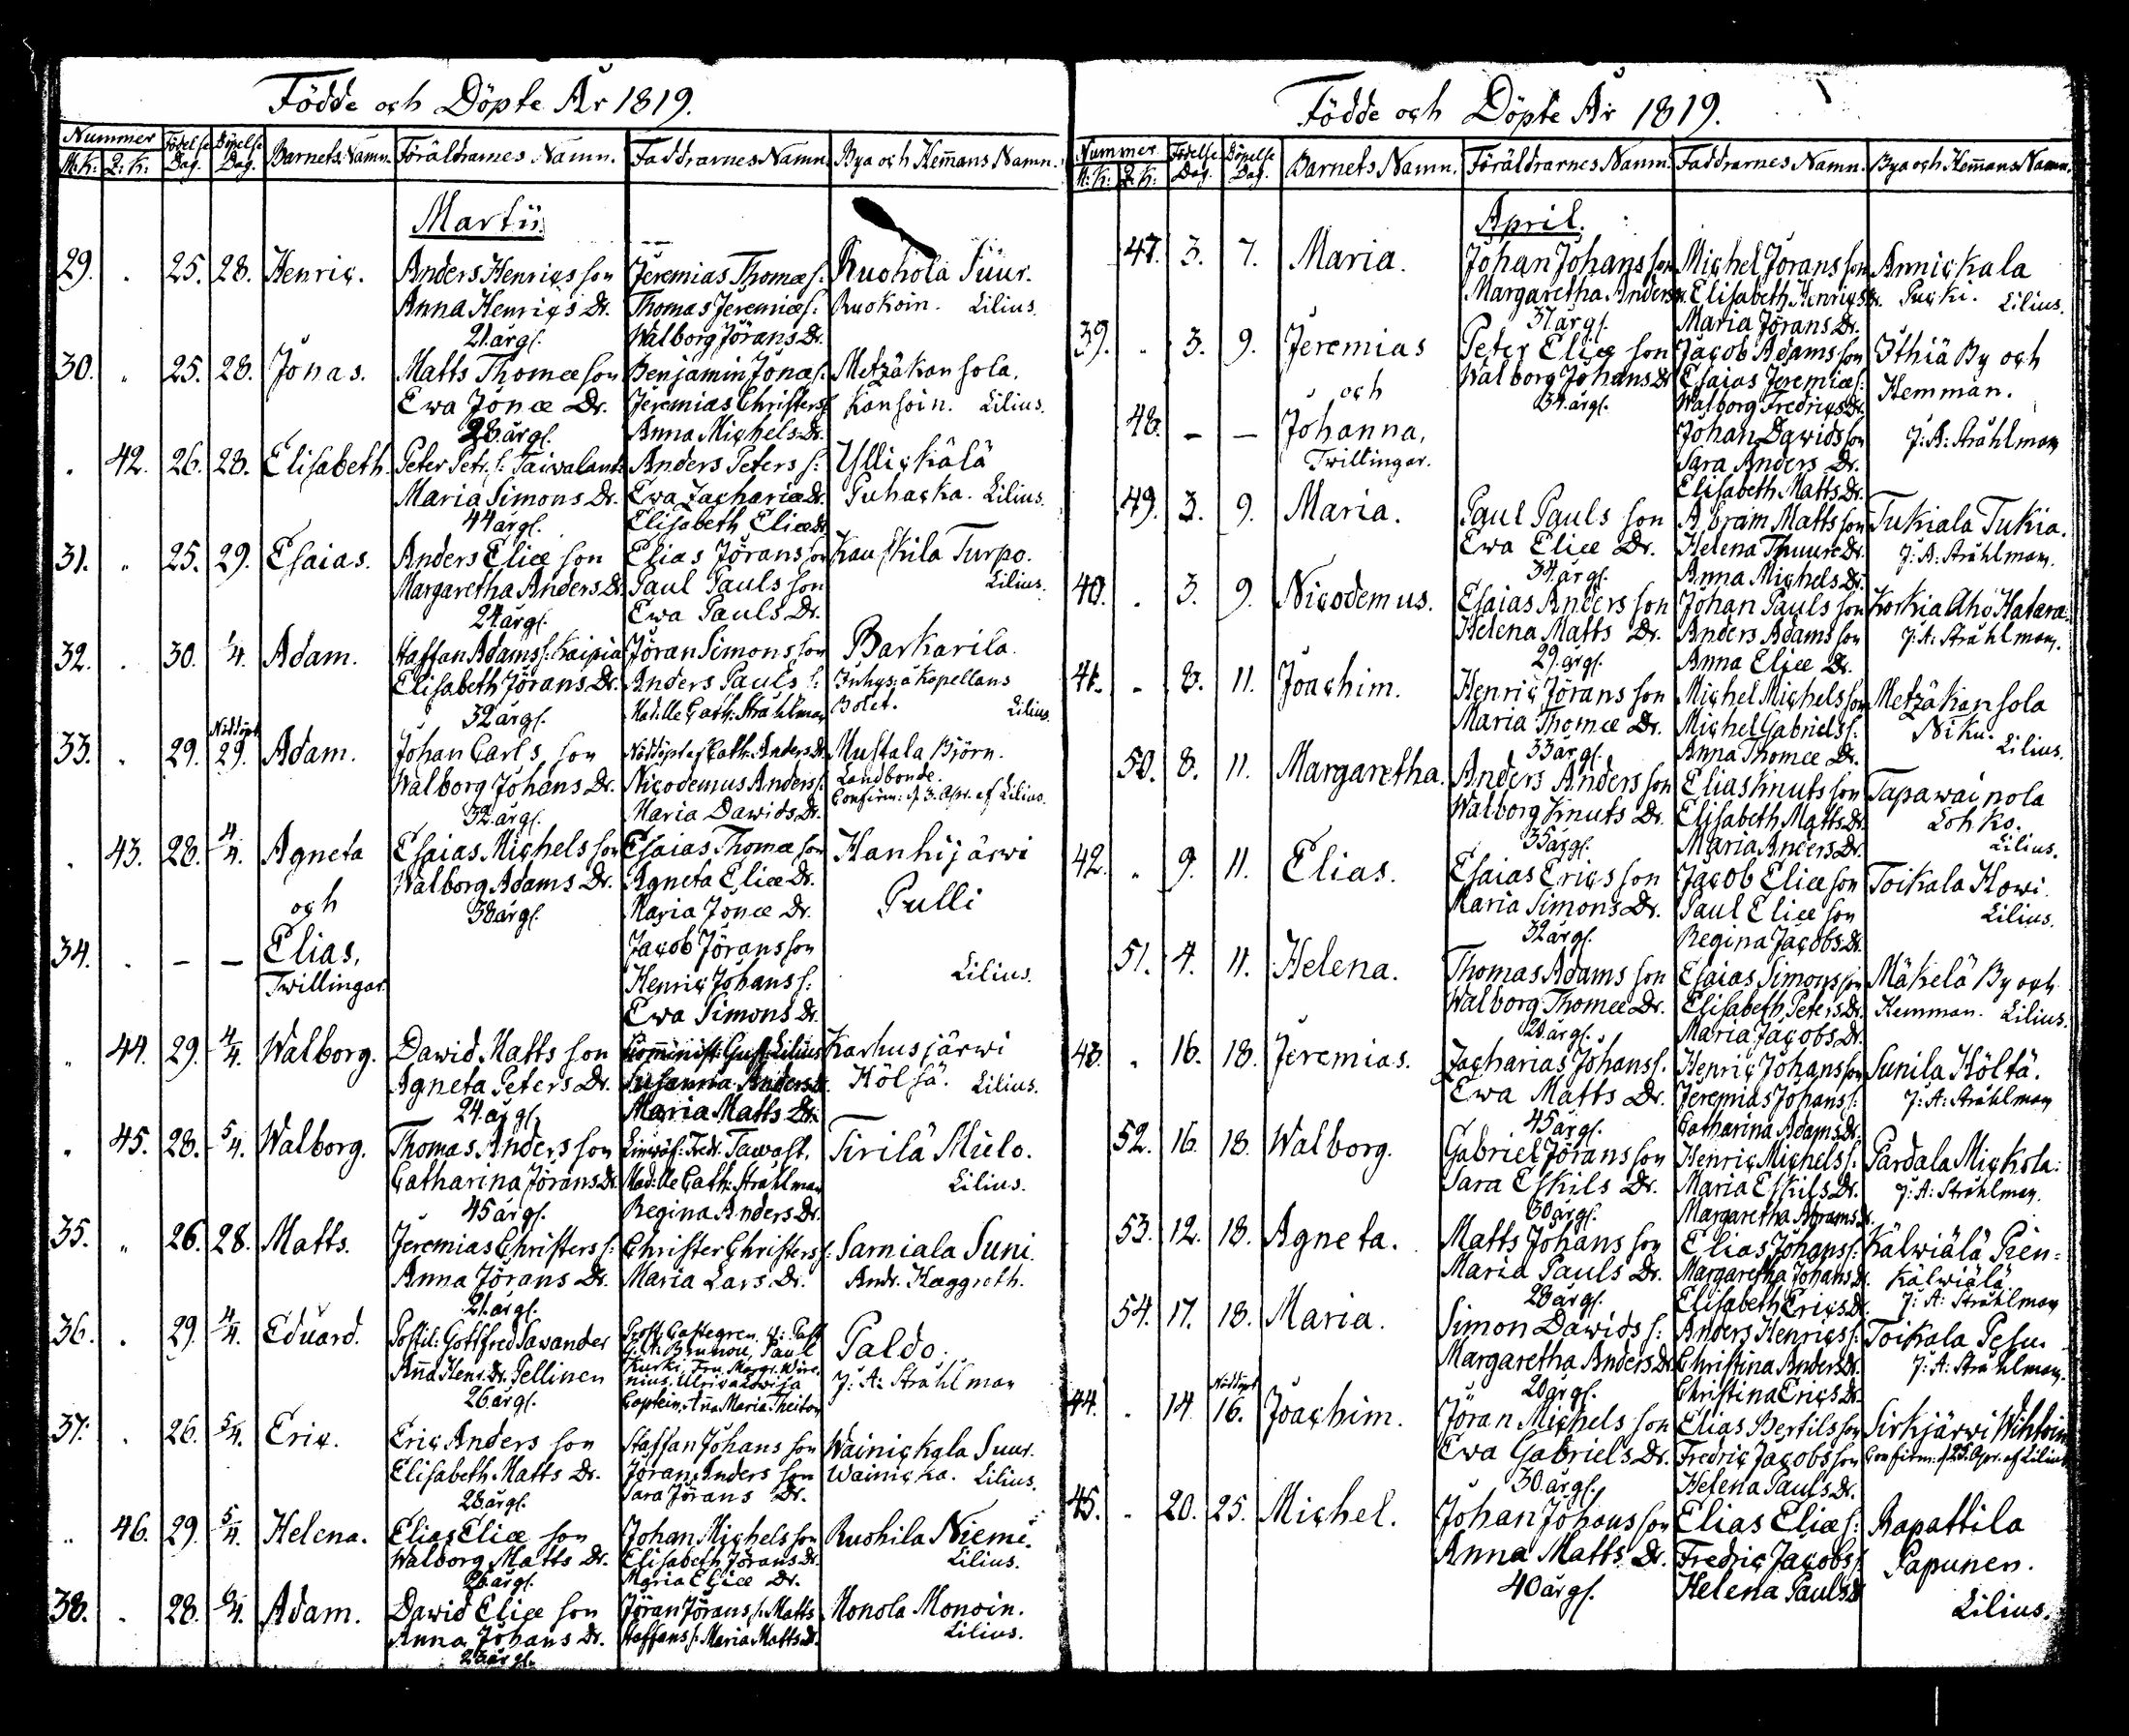 Födde och Döpte År 1819.
Nummer Födelse Döpelse Barnets Namn. Föräldrarnes Namn. Faddrarnes Namn. Bya och Hem̄ans Namn.
M:K: Q:K: Dag. Dag.
Martii
29. . 25. 28. Henric. Anders Henrics son Jeremias Thomæ s: Ruohola Suur.
Anna Henrics Dr. Thomas Jeremiæ s: Ruokoin. Lilius.
21. årgl. Walborg Jörans Dr.
30. „ 25. 28. Jonas. Matts Thomæ son Benjamin Jonæ s: Metzäkansola.
Ewa Jonæ Dr. Jeremias Christers s: Kansoin. Lilius.
28. årgl. Anna Michels Dr.
. 42. 26. 28. Elisabeth. Peter Petr. s: Taiwalant: Anders Peters s: Yllickälä
Maria Simons Dr. Ewa Zachariæ Dr. Puhacka. Lilius.
44 årgl. Elisabeth Eliæ Dr
31. „ 25. 29. Esaias. Anders Eliæ son Elias Jörans son Kauskila Turpo.
Margaretha Anders Dr. Paul Pauls son Lilius.
24. årgl. Ewa Pauls Dr.
32. . 30. 1/4. Adam. Staffan Adams s: Kaipia Jöran Simons son Barkarila.
Elisabeth Jörans Dr. Anders Pauls s: Inhys: å Kapellans
32 årgl. Mad:lle Cath: Stråhlman Bolet. Lilius.
33. . 29. Nöddöpt 29. Adam. Johan Carls son Nöddöpt af Cath: Anders Dr. Mustala Björn.
Walborg Johans Dr. Nicodemus Anders s: Landbonde.
32. årgl. Maria Dawids Dr. Confirm: d. 3. Apr. af Lilius.
. 43. 28. 4/4. Agneta Esaias Michels son Esaias Thomæ son Hanhijärwi
Walborg Adams Dr. Agneta Eliæ Dr. Pulli
och 38 årgl. Maria Jonæ Dr.
34. . – – Elias, Jacob Jörans son
Twillingar. Henric Johans s: Lilius.
Ewa Simons Dr.
„ 44. 29. 4/4. Walborg. Dawid Matts son Com̄inist: Gust: Lilius Karhusjärwi
Agneta Peters Dr. Susanna Anders Dr. Hölsä. Lilius.
24. årgl. Maria Matts Dr.
„ 45. 28. 5/4. Walborg. Thomas Anders son Fredr. Tawast, Tirilä Mielo.
Catharina Jörans Dr. Mad:lle Cath: Stråhlman Lilius.
45 årgl. Regina Anders Dr.
35. „ 26. 28. Matts. Jeremias Christers s: Christer Christers s: Sarniala Suni.
Anna Jörans Dr. Maria Lars Dr. Andr. Hæggroth.
21. årgl.
36. . 29. 4/4. Eduard. Postil: Gottfred Sawander Prost. Castegren, Paldo.
An̄a Henr. Dr. Pellinen G. A. Brunou, Paul Kurki, Fru Margr. J: A: Stråhlman
26 årgl. Captein: An̄a Maria Theiton
37. . 26. 5/4. Eric. Eric Anders son Staffan Johans son Wainickala Suur.
Elisabeth Matts Dr. Jöran Anders son Wainicka. Lilius.
28. årgl. Sara Jörans Dr.
„ 46. 29. 5/4. Helena. Elias Eliæ son Johan Michels son Ruohila Niemi.
Walborg Matts Dr. Elisabeth Jörans Dr. Lilius.
26 årgl. Maria Eliæ Dr.
38. . 28. 6/4. Adam. Dawid Eliæ son Jöran Jörans s: Matts Monola Monoin.
Anna Johans Dr. Staffans s: Maria Matts Dr. Lilius.
årgl.
Födde och Döpte År 1819.
Nummer Födelse Döpelse Barnets Namn. Föräldrarnes Namn. Faddrarnes Namn. Bya och Hem̄ans Namn.
M:K: Q:K: Dag. Dag.
April.
47. 3. 7. Maria. Johan Johans son Michel Jörans son Annickala
Margaretha Anders Dr. Elisabeth Henrics Dr. Pucki. Lilius.
37. årgl. Maria Jörans Dr.
39. . 3. 9. Jeremias Peter Eliæ son Jacob Adams son Ithiä By och
Walborg Johans Dr Esaias Jeremiæ s: Hemman.
och 34. årgl. Walborg Fredrics Dr.
48. – – Johanna, Johan Dawids son J: A: Stråhlman
Twillingar. Sara Anders Dr.
Elisabeth Matts Dr.
49. 3. 9. Maria. Paul Pauls son Abram Matts son Tukiala Tukia.
Ewa Eliæ Dr. Helena Thuure Dr. J: A: Stråhlman.
34. årgl. Anna Michels Dr.
40. . 3. 9. Nicodemus. Esaias Anders son Johan Pauls son Korkia Aho Hatara:
Helena Matts Dr. Anders Adams son J: A: Stråhlman.
29. årgl. Anna Eliæ Dr.
41. „ 8. 11. Joachim. Henric Jörans son Michel Michels son Metzäkansola
Maria Thomæ Dr. Michel Gabriels s: Niku.
33 årgl. Anna Thomæ Dr. Lilius.
50. 8. 11. Margaretha. Anders Anders son Elias Knuts son Tapawainola
Walborg Knuts Dr. Elisabeth Matts Dr. Lohko.
35 årgl. Maria Anders Dr. Lilius.
42. „ 9. 11. Elias. Esaias Erics son Jacob Eliæ son Toikala Howi.
Maria Simons Dr. Paul Eliæ son Lilius.
32 årgl. Regina Jacobs Dr.
51. 4. 11. Helena. Thomas Adams son Esaias Simons son Mäkelä By och
Walborg Thomæ Dr. Elisabeth Peters Dr. Hemman. Lilius.
21 årgl. Maria Jacobs Dr.
43. „ 16. 18. Jeremias. Zacharias Johans s: Henric Johans son Sunila Höltä.
Ewa Matts Dr. Jeremias Johans s: J: A: Stråhlman
45 årgl. Catharina Adams Dr.
52. 16. 18. Walborg. Gabriel Jörans son Henric Michels s: Pardala Mickola.
Sara Eskils Dr. Maria Eskils Dr. J: A: Stråhlman.
30 årgl. Margaretha Abrams Dr.
53. 12. 18. Agneta. Matts Johans son Elias Johans s: Kälwiälä Pien=
Maria Pauls Dr. Margaretha Johans Dr. Kälwiälä
28 årgl. Elisabeth Erics Dr. J: A: Stråhlman
54. 17. 18. Maria. Simon Dawids s: Anders Henrics s: Toikala Pesu.
Margaretha Anders Dr. Christina Anders Dr. J: A: Stråhlman.
20 årgl. Christina Erics Dr.
44. . 14. Nöddöpt 16. Joachim. Jöran Michels son Elias Bertils son Sirkjärwi Wihtoin
Ewa Gabriels Dr. Fredric Jacobs son Confirm: d 25. Apr. af Lilius
30. årgl. Helena Pauls Dr.
45. „ 20. 25. Michel. Johan Johans son Elias Eliæ s: Rapattila
Anna Matts Dr. Fredric Jacobs s: Papunen.
40 årgl. Helena Pauls Dr Lilius.